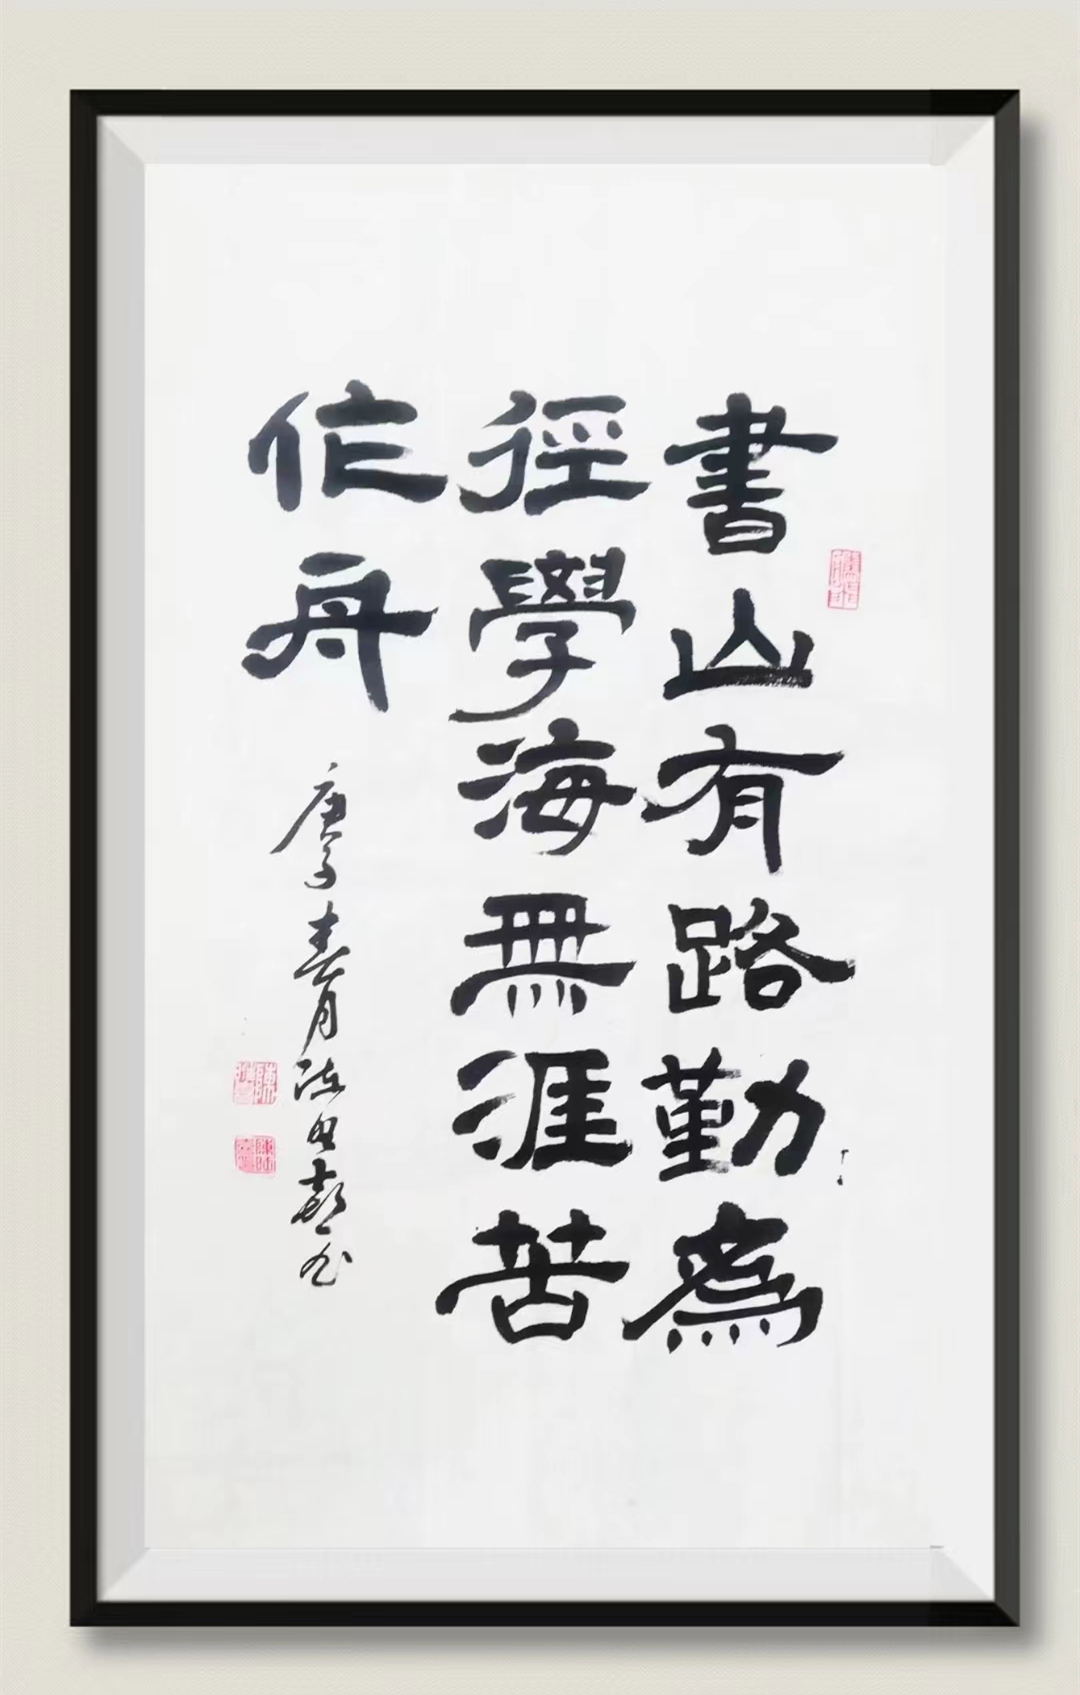 書山有路勤為
徑學海無涯苦
作舟
庚子春月陳